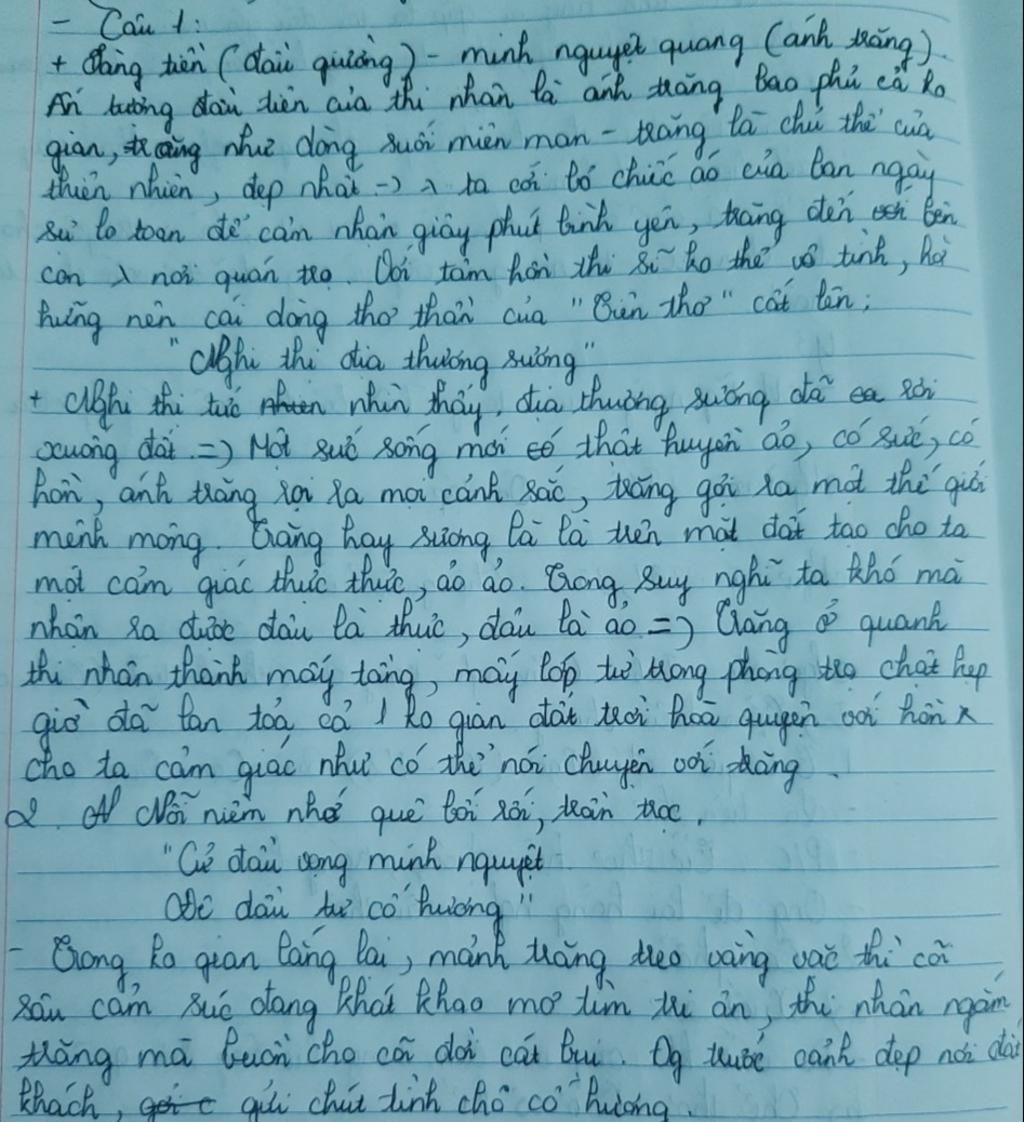 - Câu 1:
+ Sàng tiền (đầu giường) - minh nguyệt quang (ánh trăng)
Ấn tượng đầu tiên của thi nhân là ánh trăng bao phủ cả ko
gian, trăng như dòng suối miên man - trăng là chủ thể của
thiên nhiên, đẹp nhất -> λ ta cởi bỏ chiếc áo của ban ngày
sự lo toan để cảm nhận giây phút bình yên, trăng đến bên
con λ nơi quán trọ. Với tâm hồn thi sĩ ko thể vô tình, hờ
hững nên cái dòng thơ thần của "Tiên thơ" cất lên:
"Nghi thị địa thượng sương"
+ Nghi thị tức nhìn thấy, địa thượng sương đã rơi
xuống đất => Một sức sống mới thật huyền ảo, có sức, có
hồn, ánh trăng rọi ra mọi cảnh sắc, trăng gợi ra một thế giới
mênh mông. Trăng hay sương là là trên mặt đất tạo cho ta
một cảm giác thực thực, ảo ảo. Trong suy nghĩ ta khó mà
nhận ra được đâu là thực, đâu là ảo => Trăng ở quanh
thi nhân thành mấy tầng, mấy lớp từ trong phòng trọ chật hẹp
giờ đã lan toả cả 1 ko gian đất trời hoà quyện với hồn λ
cho ta cảm giác như có thể nói chuyện với trăng.
2. Nỗi niềm nhớ quê bối rối, trằn trọc.
"Cử đầu vọng minh nguyệt
Đê đầu tư cố hương"
- Trong ko gian lắng lại, mảnh trăng treo vằng vặc thì cõi
sâu cảm xúc đang khát khao mơ tìm tri ân, thi nhân ngắm
trăng mà buồn cho cõi đời cát bụi. Đg trước cảnh đẹp nơi đất
khách, gửi chút tình cho cố hương.